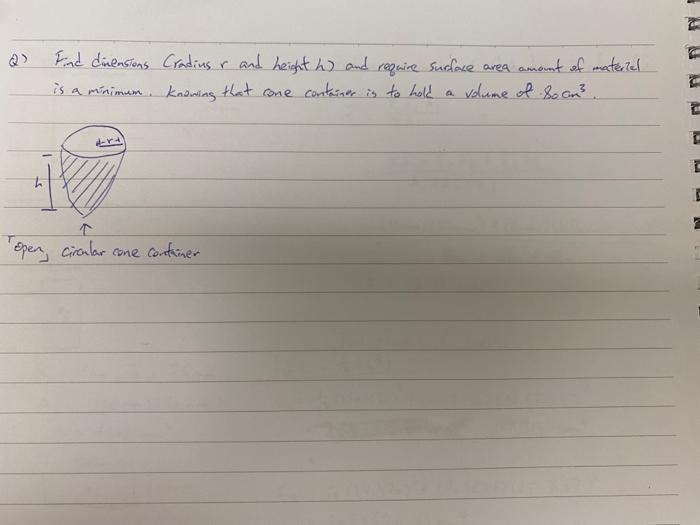 Q) Find dimensions (radius r and height h) and require surface area amount of material
is a minimum. Knowing that cone container is to hold a volume of 80 cm³.
r
h
open, circular cone container